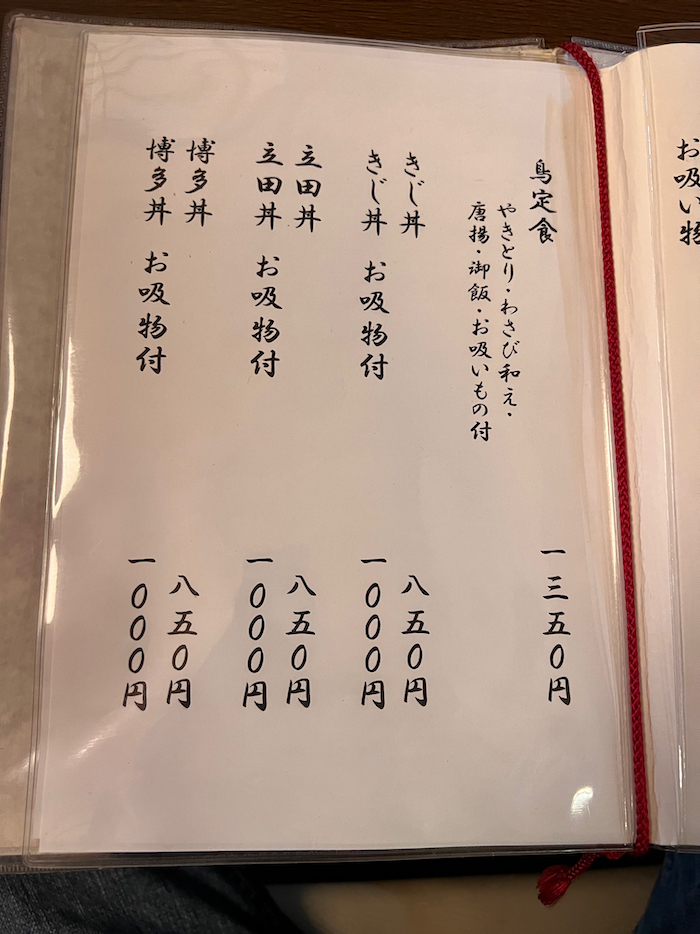 お吸い物
鳥定食 一三五〇円
やきとり・わさび和え・
唐揚・御飯・お吸いもの付
きじ丼 八五〇円
きじ丼 お吸物付 一〇〇〇円
立田丼 八五〇円
立田丼 お吸物付 一〇〇〇円
博多丼 八五〇円
博多丼 お吸物付 一〇〇〇円